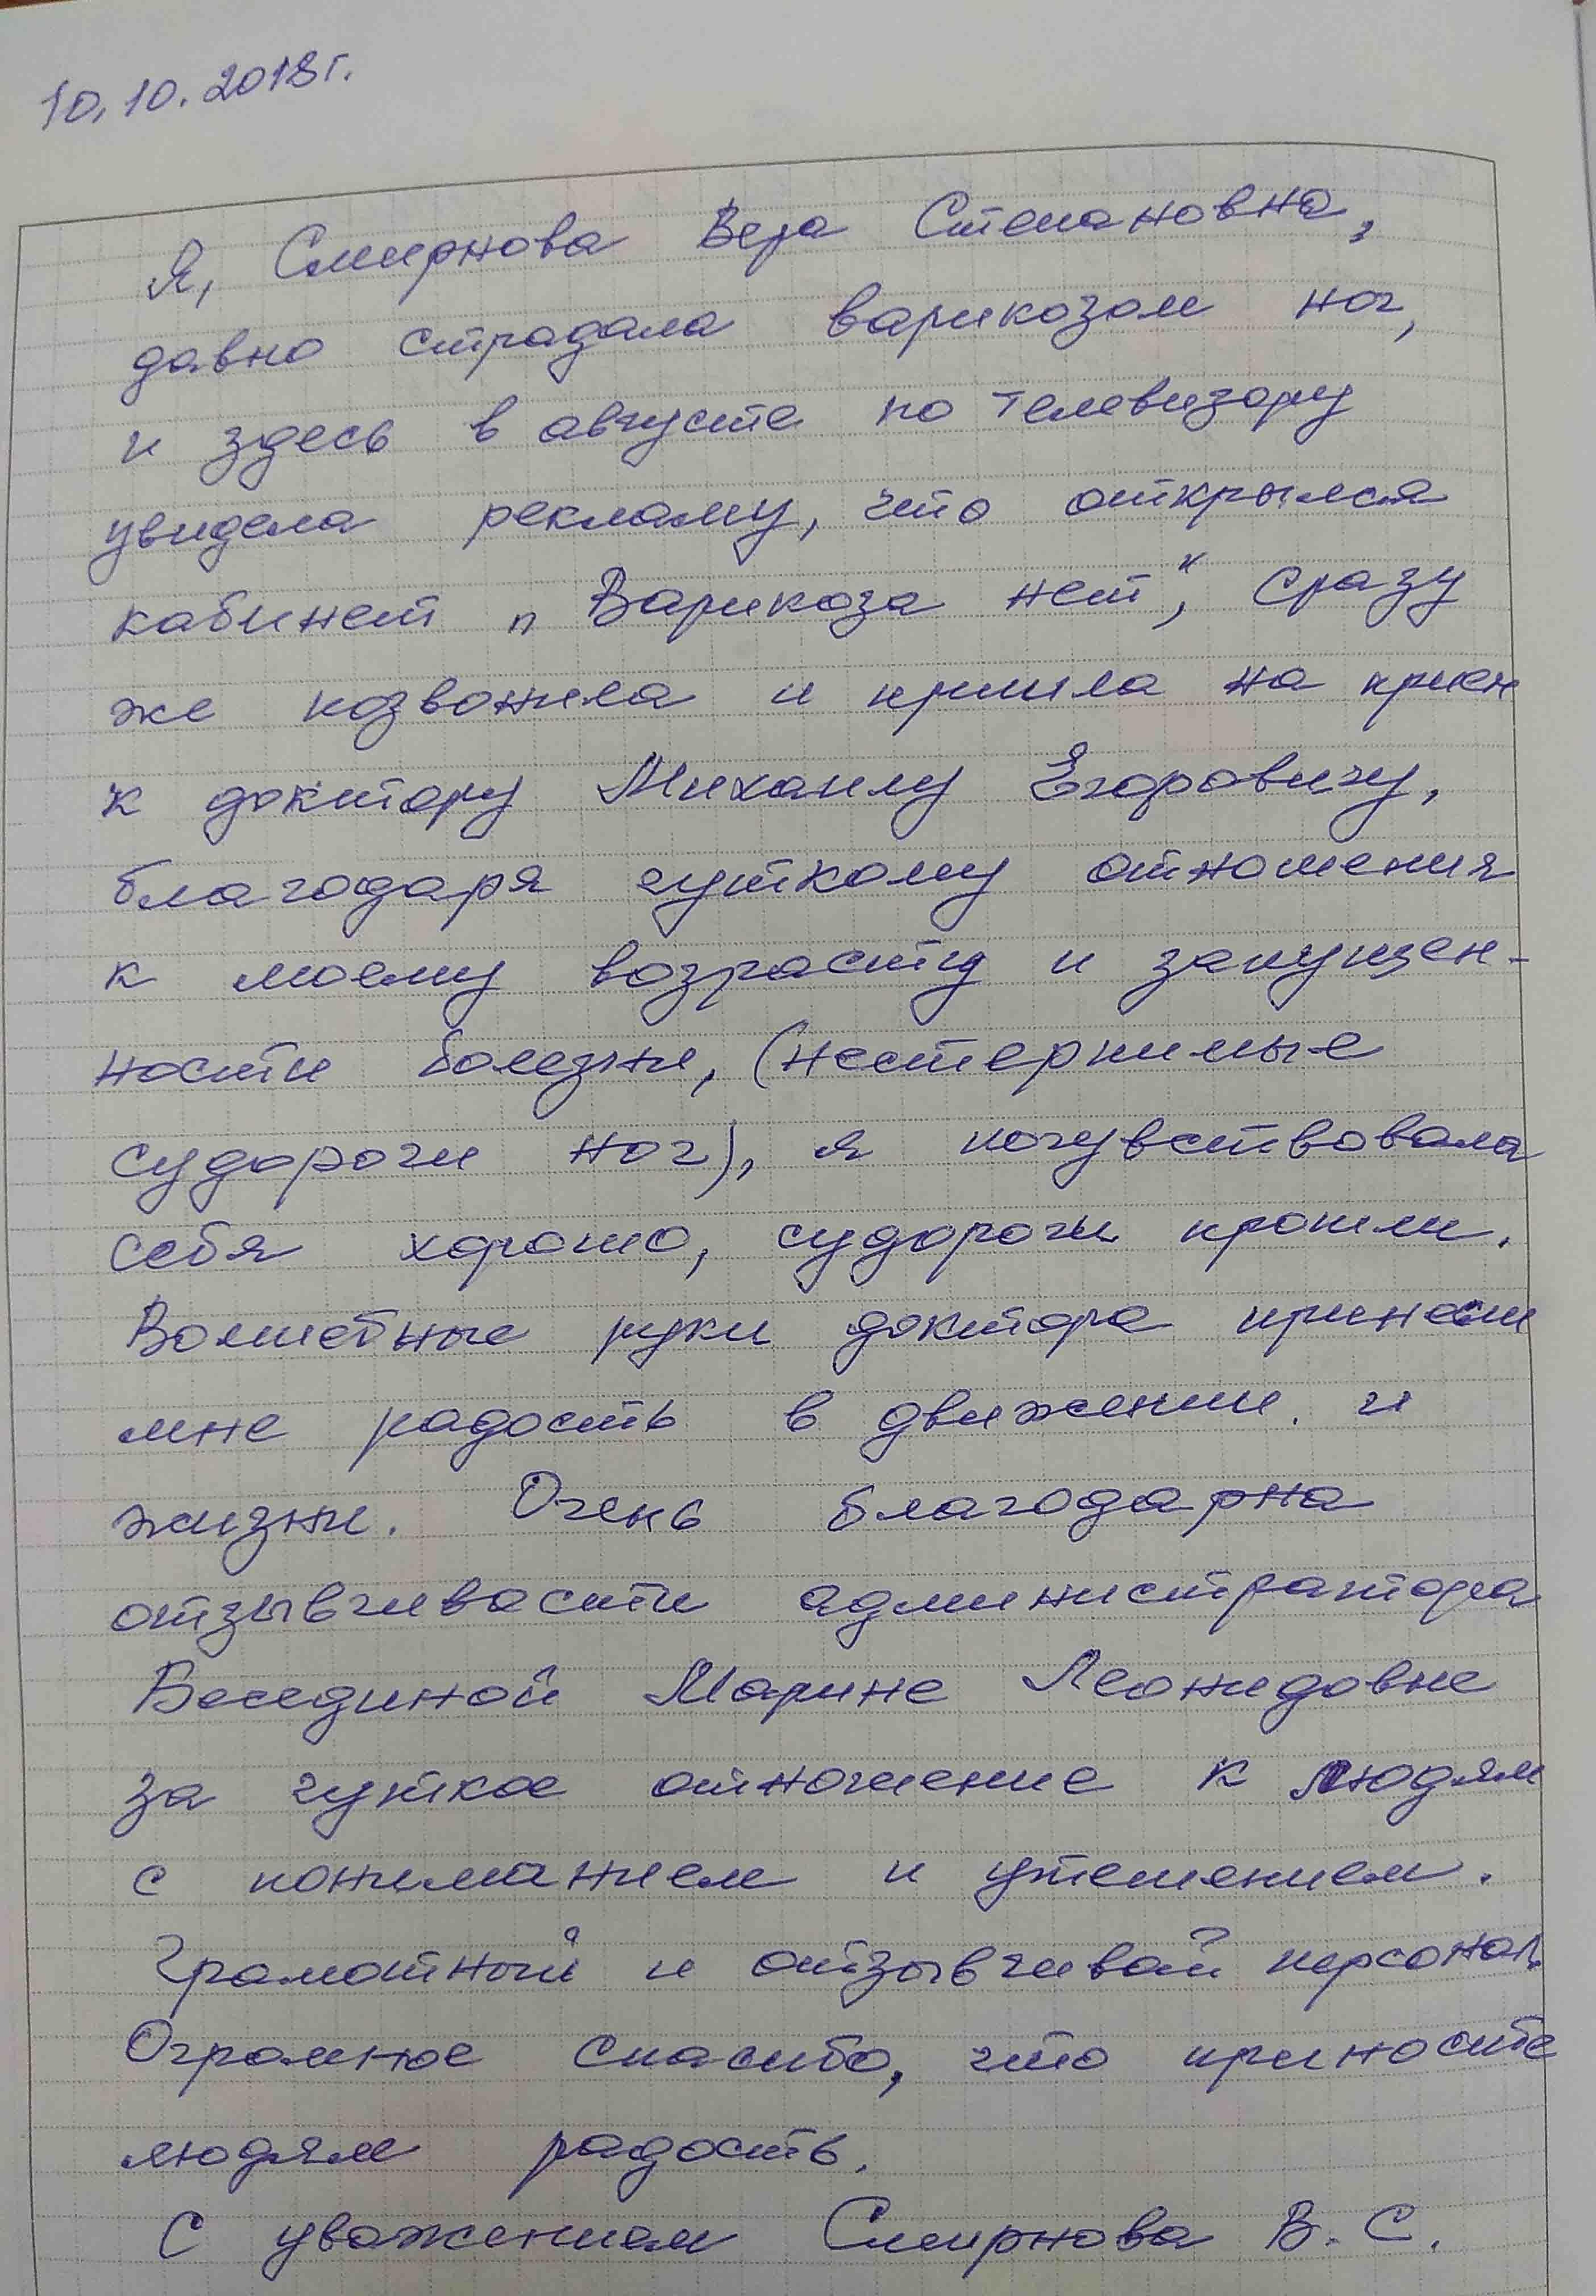 10.10.2018г.
Я, Смирнова Вера Степановна,
давно страдала варикозом ног,
и здесь в августе по телевизору
увидела рекламу, что открылся
кабинет „Варикоза нет“, сразу
же позвонила и пришла на прием
к доктору Михаилу Егоровичу,
благодаря чуткому отношения
к моему возрасту и запущен-
ности болезни, (нестерпимые
судороги ног), я почувствовала
себя хорошо, судороги прошли.
Волшебные руки доктора принесли
мне радость в движении. и
жизни. Очень благодарна
отзывчивости администратора
Бесединой Марине Леонидовне
за чуткое отношение к людям
с пониманием и утешением.
Грамотный и отзывчивый персонал.
Огромное спасибо, что приносите
людям радость.
С уважением Смирнова В.С.